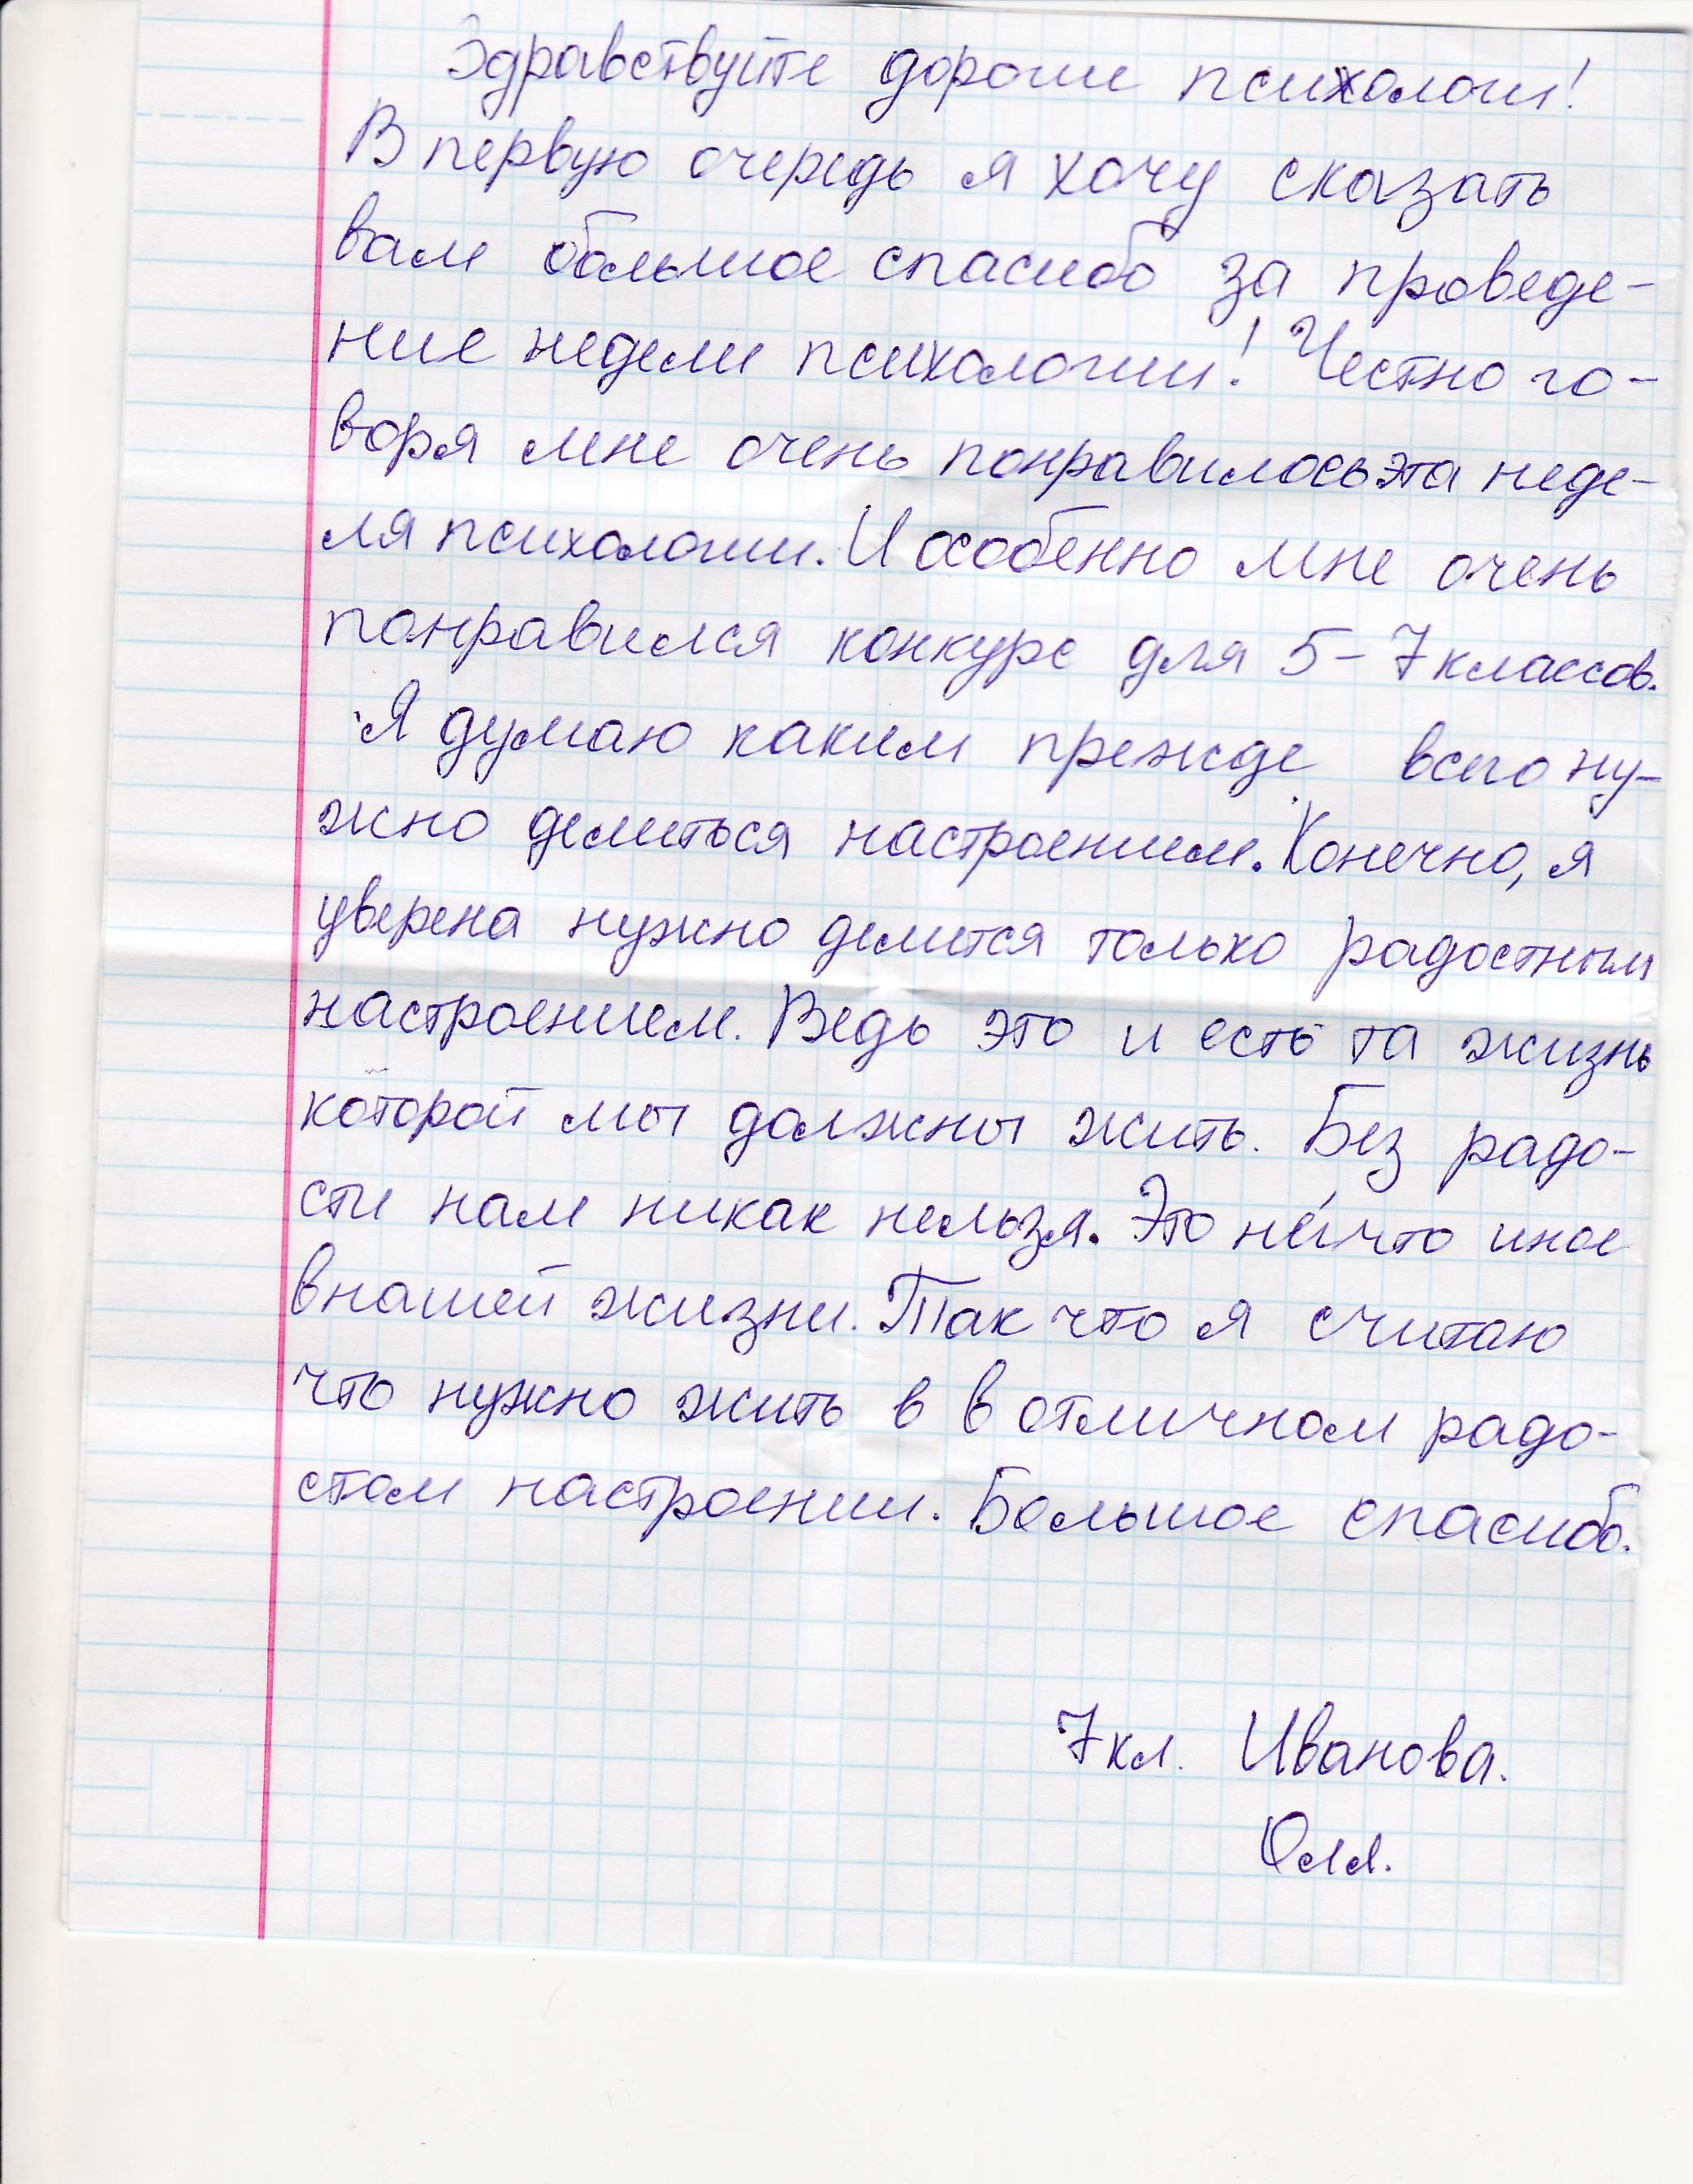 Здравствуйте дорогие психологи!
В первую очередь я хочу сказать
вам обольшое спасибо за проведе-
ние недели психологии! Честно го-
воря мне очень понравилось эта неде-
ля психологии. И особенно мне очень
понравился конкурс для 5-7 классов.
Я думаю каким прежде всего ну-
жно делиться настроением. Конечно, я
уверена нужно делится только радостным
настроением. Ведь это и есть та жизнь
которой мы должны жить. Без радо-
сти нам никак нельзя. Это не́что иное
в нашей жизни. Так что я считаю
что нужно жить в в отличном радо-
стом настроении. Большое спасибо.
7 кл. Иванова.